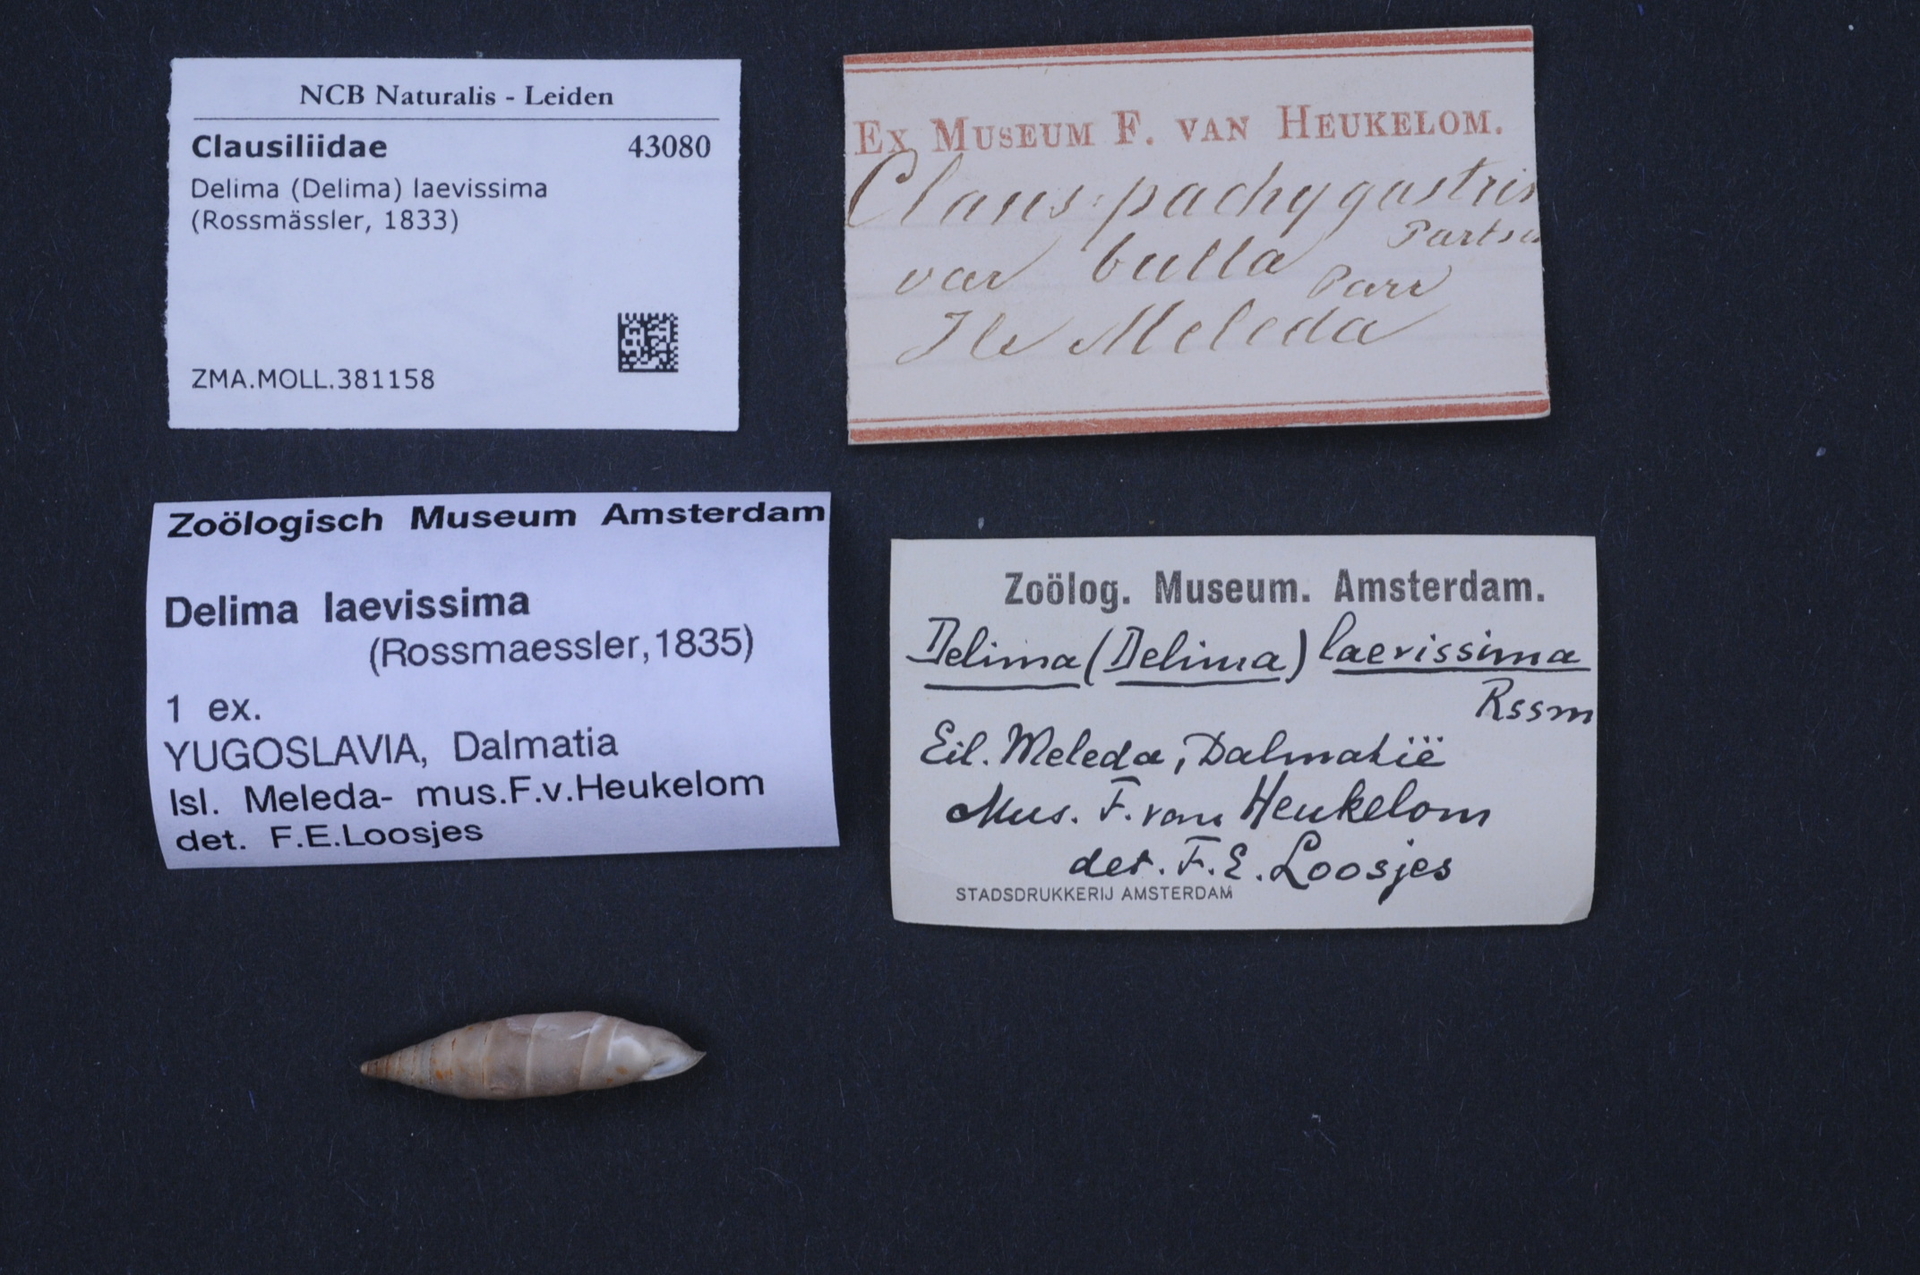 NCB Naturalis - Leiden
Clausiliidae 43080
Delima (Delima) laevissima
(Rossmässler, 1833)
ZMA.MOLL.381158
Ex Museum F. van Heukelom.
Claus: pachygastris
Partsch
var bulla Parr
Ile Meleda
Zoölogisch Museum Amsterdam
Delima laevissima
(Rossmaessler,1835)
1 ex.
YUGOSLAVIA, Dalmatia
Isl. Meleda- mus.F.v.Heukelom
det. F.E.Loosjes
Zoölog. Museum. Amsterdam.
Delima (Delima) laevissima
Rssm
Eil. Meleda, Dalmatië
Mus. F. van Heukelom
det. F.E. Loosjes
STADSDRUKKERIJ AMSTERDAM